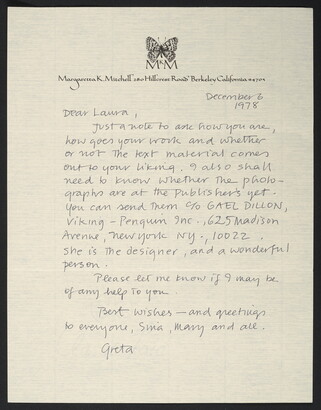 MKM
Margaretta K. Mitchell 280 Hillcrest Road Berkeley California 94705
December 6
1978
Dear Laura,
Just a note to ask how you are,
how goes your work and whether
or not the text material comes
out to your liking. I also shall
need to know whether the photo-
graphs are at the publisher's yet.
You can send them c/o GAEL DILLON,
Viking-Penguin Inc., 625 Madison
Avenue, New York NY., 10022.
She is the designer, and a wonderful
person.
Please let me know if I may be
of any help to you.
Best wishes — and greetings
to everyone, Sina, Mary and all.
Greta